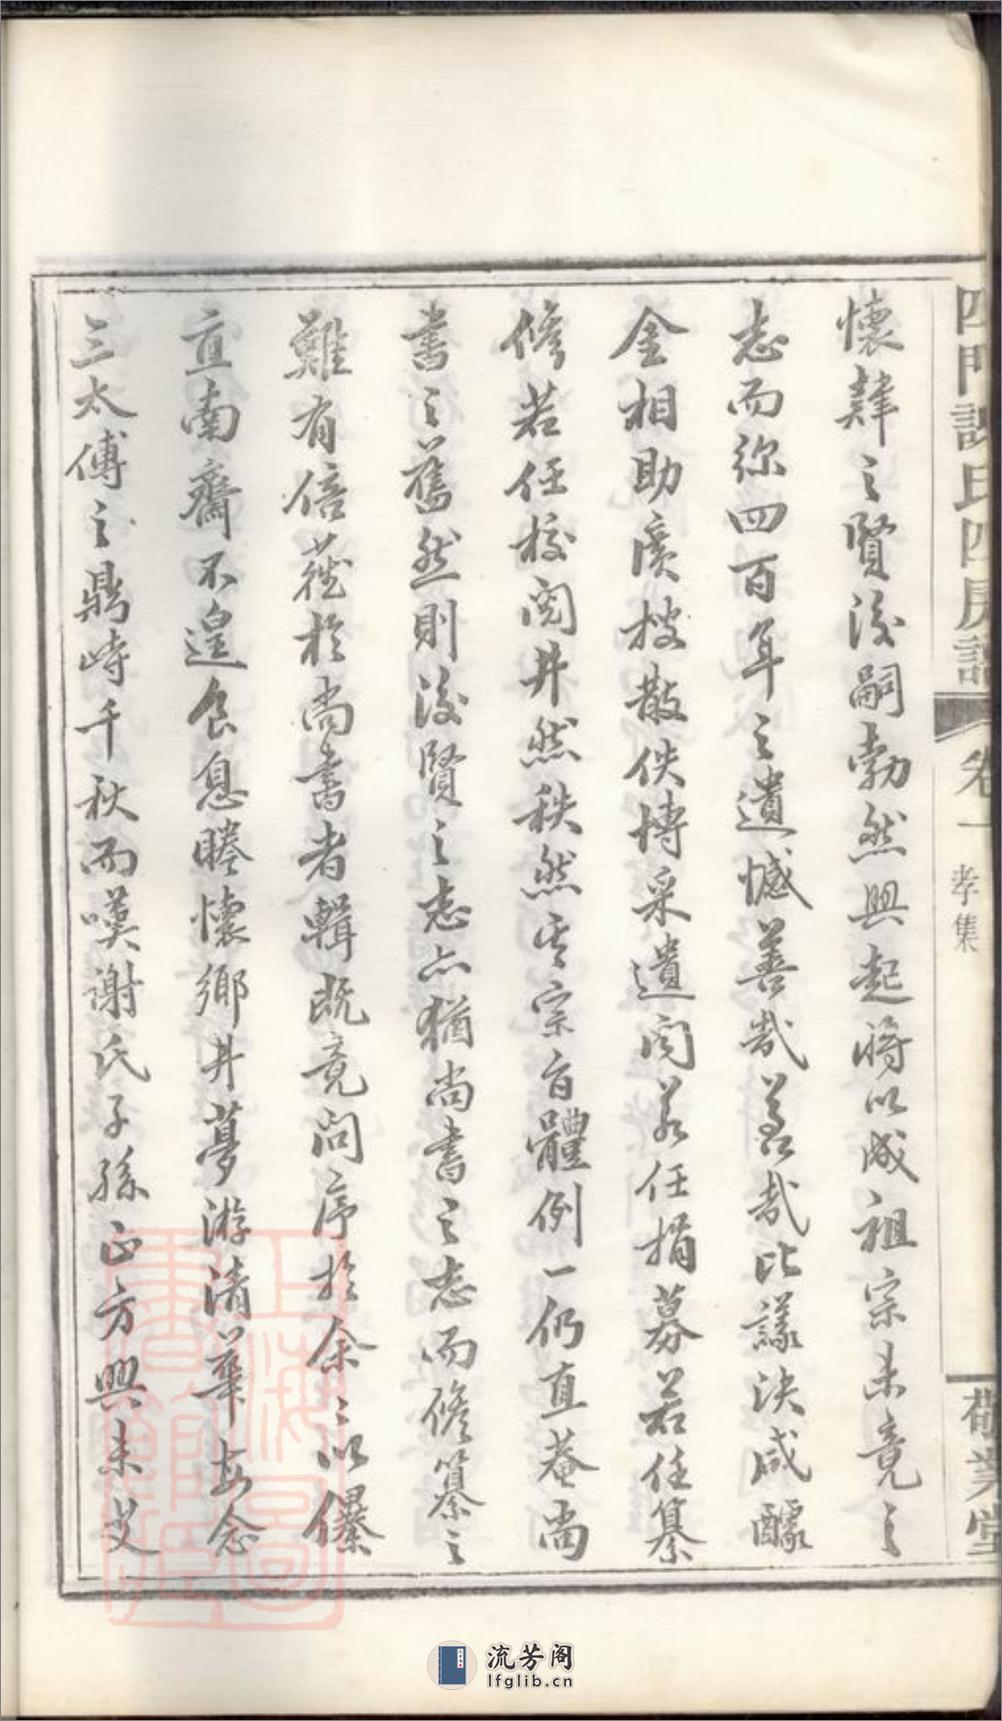 四門謝氏四房譜 卷一 孝集 敬業堂
懷韡之賢後嗣勃然興起將以成祖宗未竟之
志而弥四百年之遺憾善哉善哉比議決咸醵
金相助廣搜散佚博采遺聞若任捐募若任纂
修若任校閱井然秩然其宗旨體例一仍直菴尚
書之舊然則後賢之志亦猶尚書之志而修纂之
難有倍蓰於尚書者輯既竟問序於余余以儤
直南齋不遑食息睠懷鄉井夢游清華每念
三太傅之鼎峙千秋而嘆謝氏子孫正方興未艾
上海圖書館藏
流芳阁
lfglib.cn